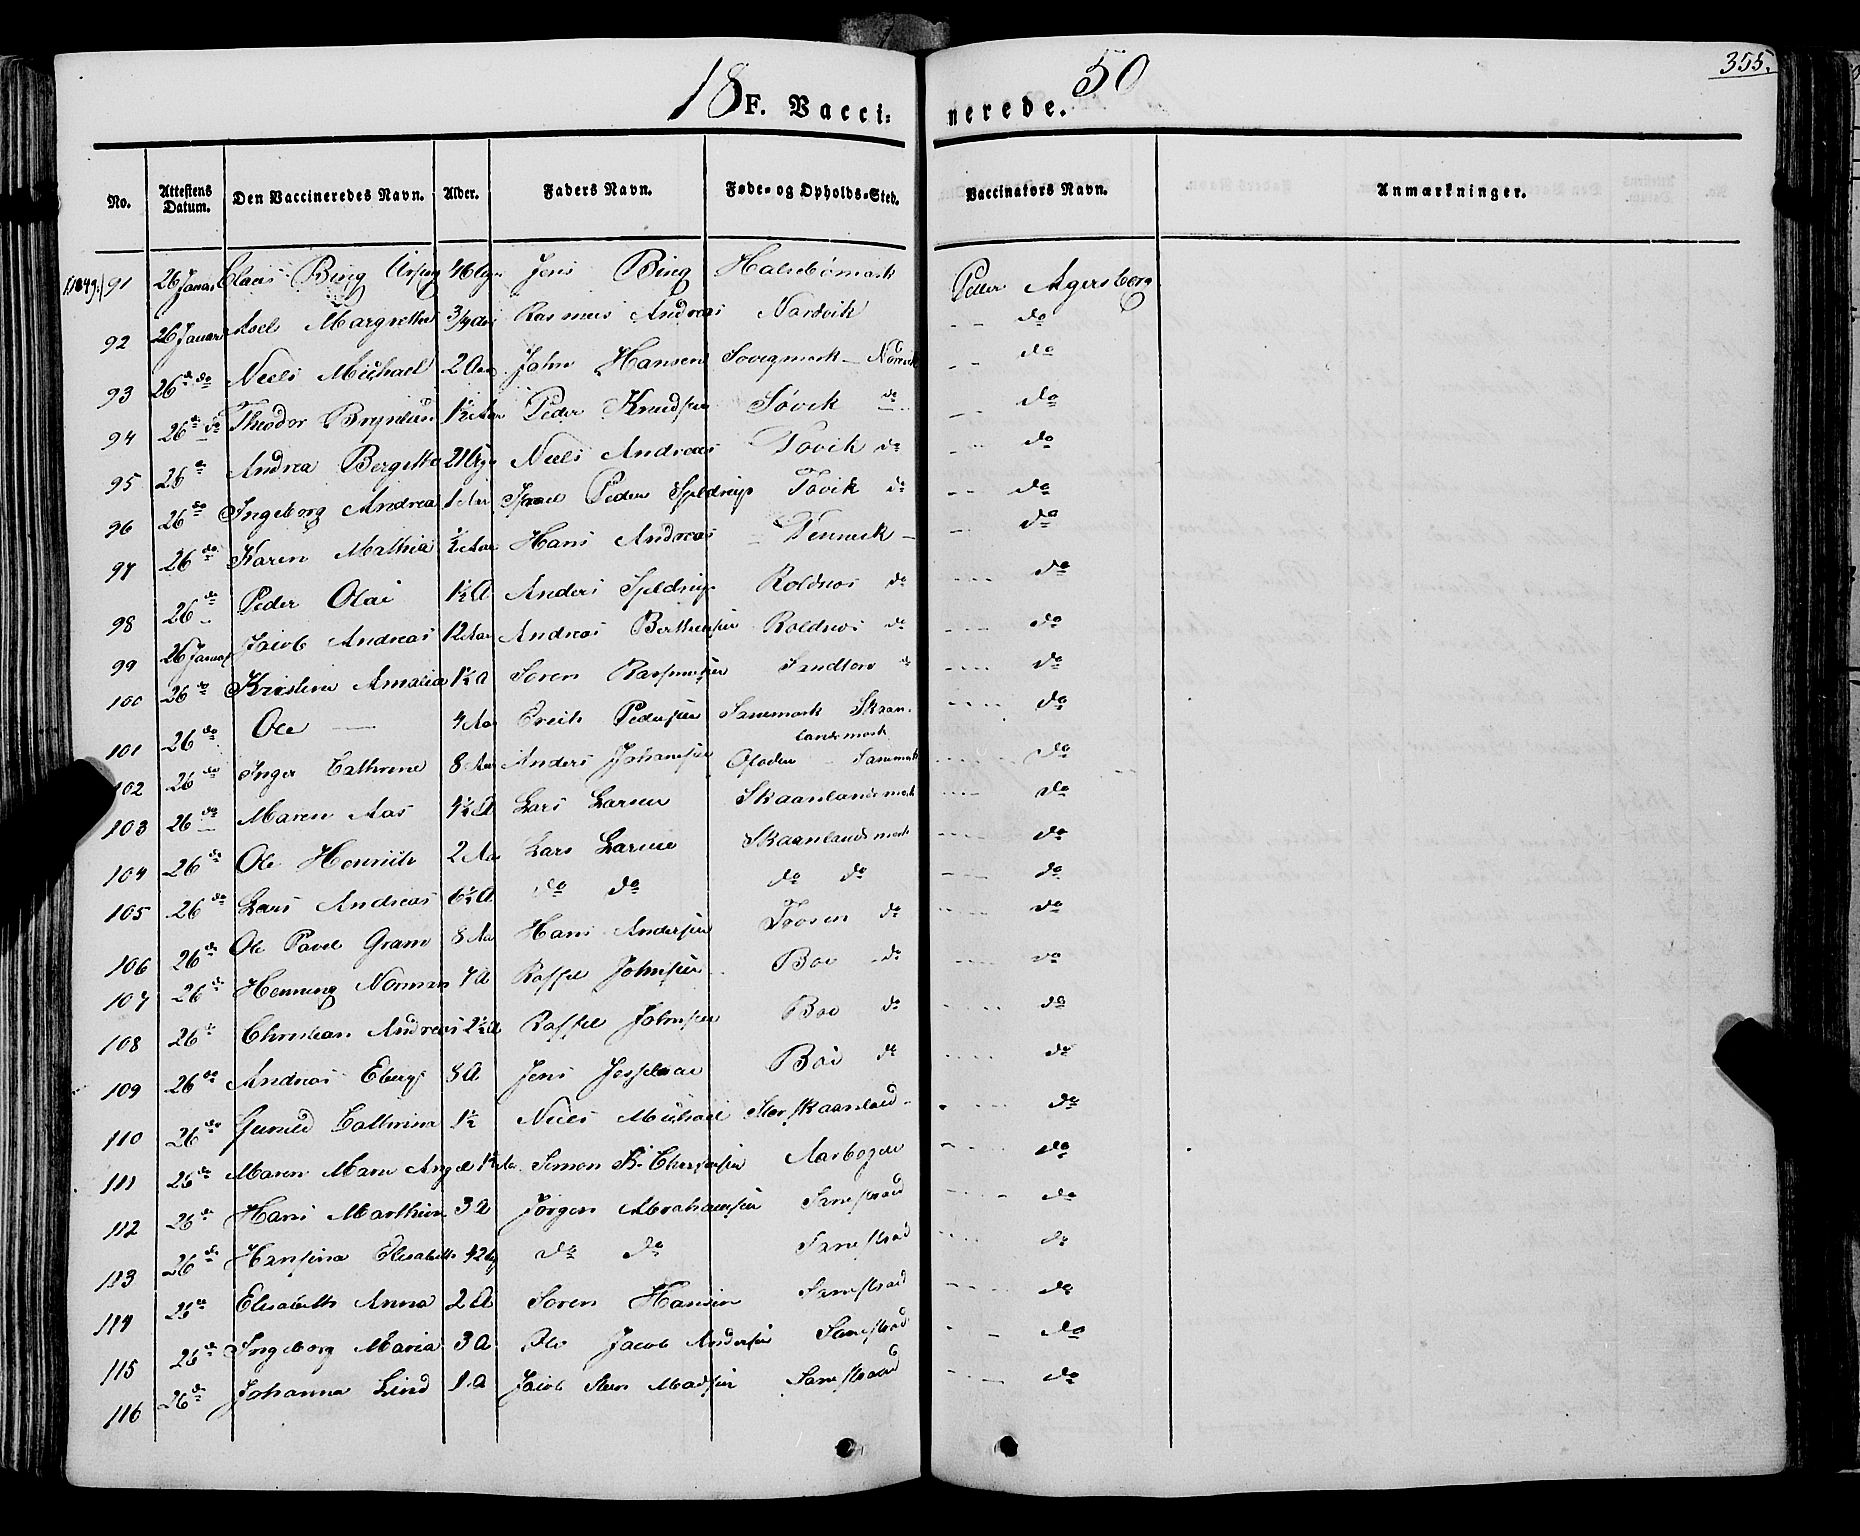 1850
355.
F. Vaccinerede.
No. Attestens Datum. Den Vaccineredes Navn. Alder. Faders Navn. Føde- og Opholds-Sted. Vaccinators Navn. Anmærkninger.
1849 91 26 Januar Claus Bing 46 Jens Bing Petter Agersborg
92 26 Januar Axel Margrethe 3/4 Aar Rasmus Andreas Nordvik do
93 26 do do Niels Michael 2 Aar John Hansen do
94 26 do do Theodor 1½ Aar Peder Knudsen Søvik do do
95 26 do Andrea Bergitte 21 Niels Andreas Tovik do do
96 26 do Ingeborg Andrea 1 Aar Peder Tovik do do
97 26 do Karen Mathia ½ Aar Hans Andreas do
98 26 do Peder Olai 1½ A Anders Roldnes do do
99 26 Januar Jacob Andreas 12 Aar Andreas Berthensen Roldnes do do
100 26 do Kristina Amalia 1½ A Soren Rasmussen Sandtorv do do
101 26 do Ole 4 Aar Erich Pedersen Sanemark Skaanlandsmark do
102 26 do Inger Cathrine 8 Aar Anders Johansen Sanemark do
103 26 do Maren Aas 4½ A Lars Larsen Skaanlandsmark do
104 26 do Ole Henrich 2 Aar Lars Larsen Skaanlandsmark do
105 26 do Lars Andreas 6½ A do do do do do
106 26 do Ole Pavel Gram 8 Aar Hans Andersen do do
107 26 do Henning Norman 4 A Raffel Johnsen Boe do do
108 26 do Christian Andreas 2½ A Raffel Johnsen Boe do do
109 26 do Andreas Eberg 8 A Jens Boe do do
110 26 do Gunild Cathrina 1½ Niels Michael Stor skaanland do
111 26 do Maren Marie 1½ Aar Simon Aarbogen do
112 26 do Hans Marthin 3 A Jörgen Abrahamsen Sanestrand do
113 26 do Hansina Elisabeth 42 do do Sanestrand do
114 26 do Elisabeth Anna 2 A Soren Hansen Sanestrand do
115 26 do Ingeborg Maria 3 A Ole Jacob Andersen Sanestrand do
116 26 do Johanna Lind 1 A Jacob Steen Madsen Sanestrand do